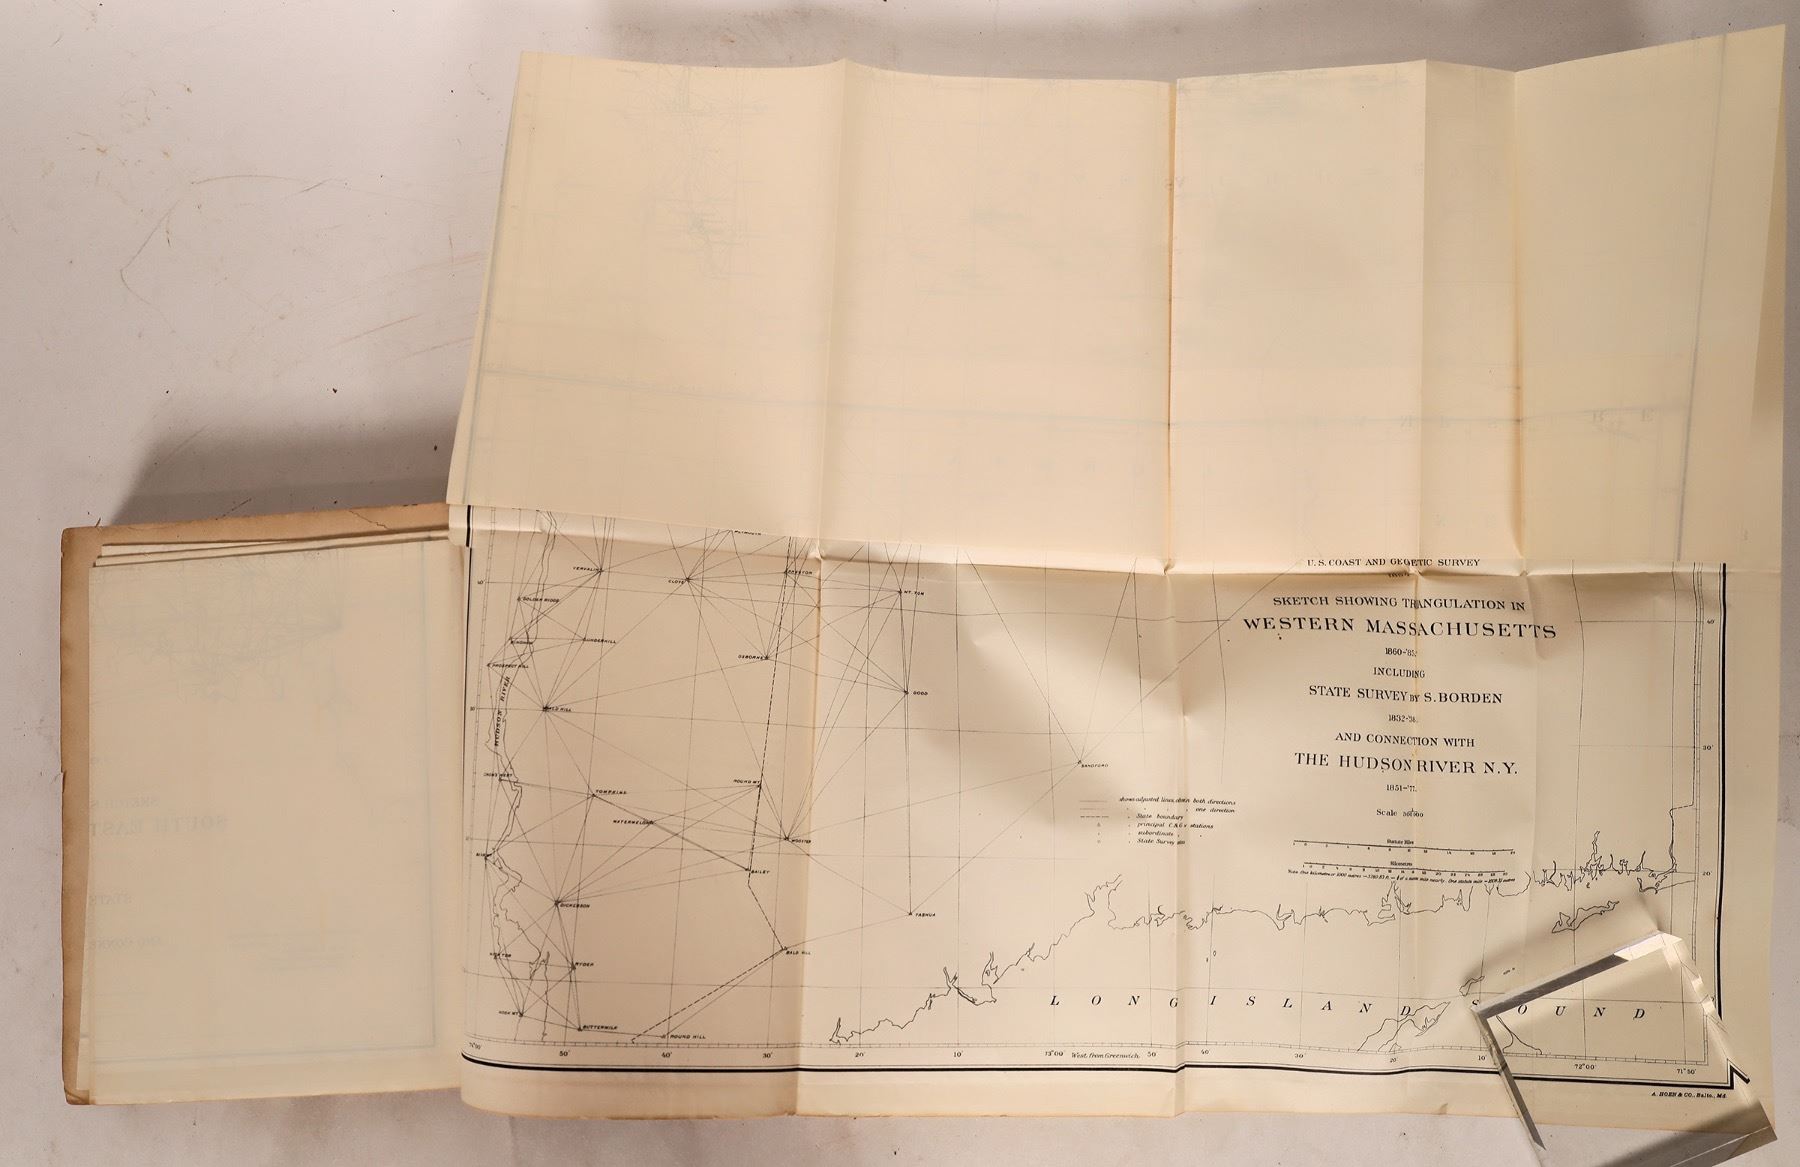 U. S. COAST AND GEODETIC SURVEY
SKETCH SHOWING TRIANGULATION IN
WESTERN MASSACHUSETTS
1860-'85.
INCLUDING
STATE SURVEY BY S. BORDEN
1832-'38.
AND CONNECTION WITH
THE HUDSON RIVER N.Y.
1851-'77.
Scale
Statute Miles
Kilometres
shows adjusted lines, obs'n both directions
one direction
State boundary
principal C. & G.
stations
subordinate
State Survey
CLOVE
MT. TOM
SUNDERHILL
PROSPECT HILL
OSBORNE
GOOD
BALD HILL
HUDSON RIVER
SANDFORD
ROUND MT.
TOMPKINS
WATERMELON
WOOSTER
BAILEY
DICKERSON
TASHUA
BALD HILL
RYDER
HOOK MT.
BUTTERMILK
ROUND HILL
LONG ISLAND SOUND
50'
40'
30'
20'
10'
73°00'
West from Greenwich.
50'
40'
30'
20'
10'
72°00'
71°50'
40'
30'
20'
A. HOEN & CO., Balto., Md.